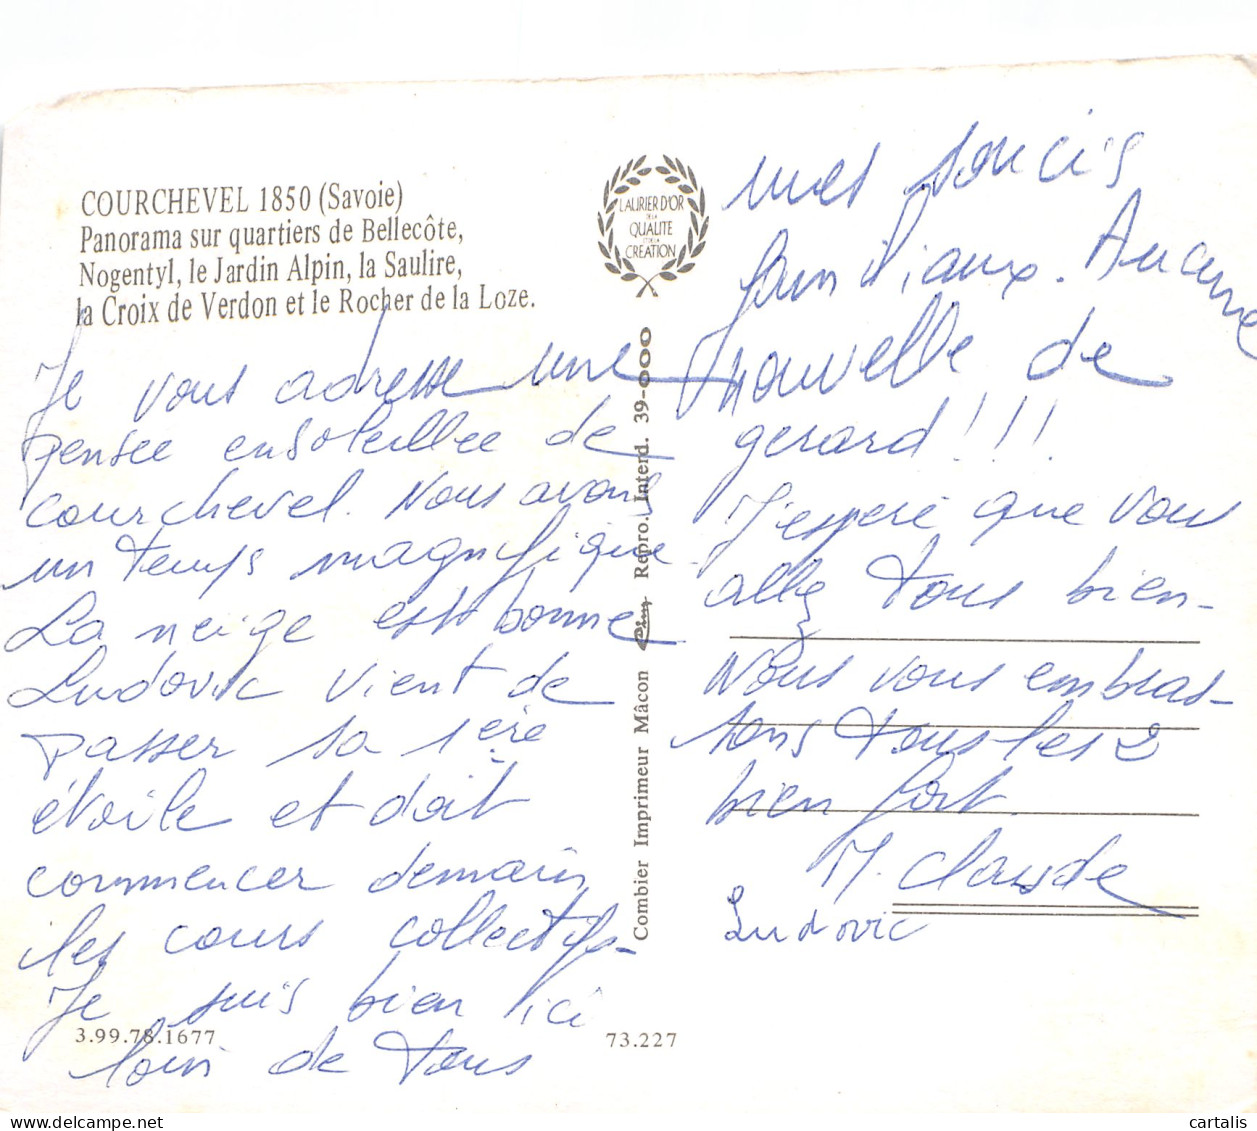 COURCHEVEL 1850 (Savoie)
Panorama sur quartiers de Bellecôte,
Nogentyl, le Jardin Alpin, la Saulire,
la Croix de Verdon et le Rocher de la Loze.
Je vous adresse une
pensée ensoleillée de
courchevel. Nous avons
un temps magnifique.
La neige est bonne
Ludovic vient de
passer sa 1ère
étoile et doit
commencer demain
les cours collectifs-
Je suis bien ici
loin de tous
3.99.78.1677
73.227
LAURIER D'OR
DE LA
QUALITE
ET DE LA
CREATION
Combier Imprimeur Mâcon Cim Repro. Interd. 39-000
mes soucis
familiaux. Aucune
nouvelle de
gerard!!!
J'espère que vous
allez tous bien-
Nous vous embras-
sons tous les 2
bien fort.
M. Claude
Ludovic
cartalis